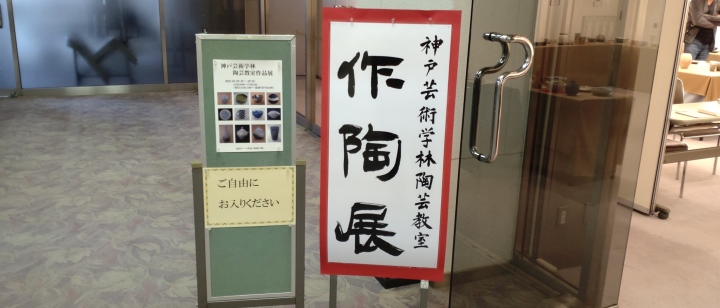 神戸芸術学林
陶芸教室作品展
ご自由に
お入りください
神戸芸術学林陶芸教室
作陶展